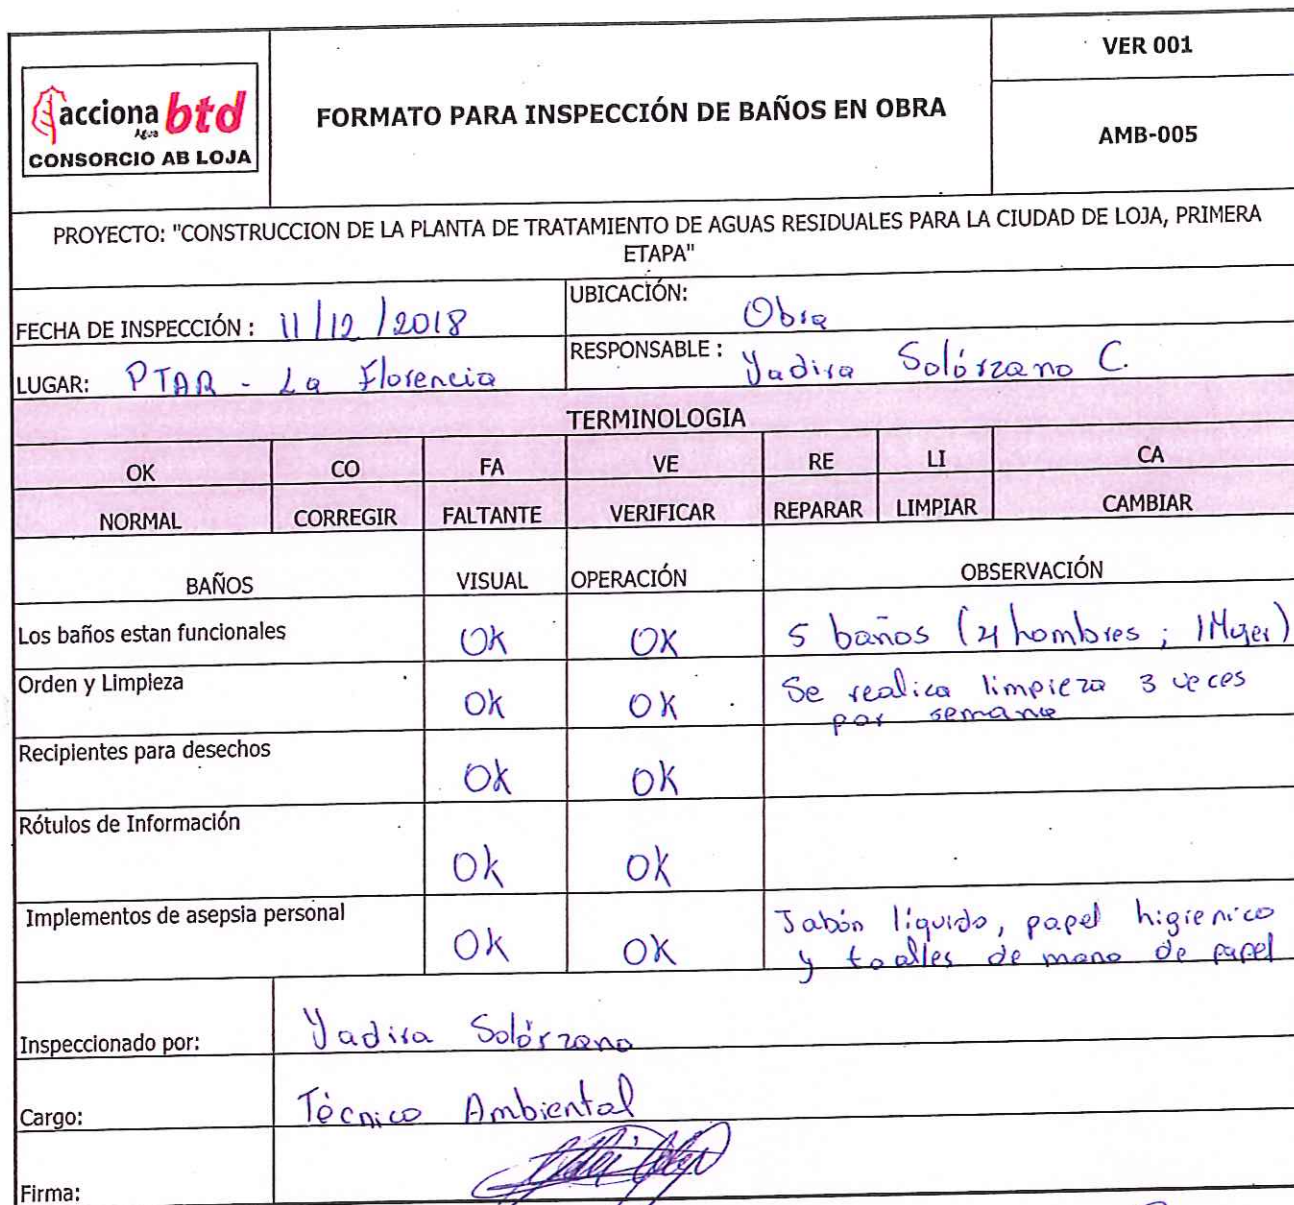 acciona Agua btd
CONSORCIO AB LOJA
FORMATO PARA INSPECCIÓN DE BAÑOS EN OBRA
VER 001
AMB-005
PROYECTO: "CONSTRUCCION DE LA PLANTA DE TRATAMIENTO DE AGUAS RESIDUALES PARA LA CIUDAD DE LOJA, PRIMERA
ETAPA"
FECHA DE INSPECCIÓN : 11/12/2018
UBICACIÓN: Obra
LUGAR: PTAR - La Florencia
RESPONSABLE : Yadira Solórzano C.
TERMINOLOGIA
OK CO FA VE RE LI CA
NORMAL CORREGIR FALTANTE VERIFICAR REPARAR LIMPIAR CAMBIAR
BAÑOS VISUAL OPERACIÓN OBSERVACIÓN
Los baños estan funcionales OK OK 5 baños (4 hombres ; 1 Mujer)
Orden y Limpieza OK OK Se realiza limpieza 3 veces
por semana
Recipientes para desechos OK OK
Rótulos de Información OK OK
Implementos de asepsia personal OK OK Jabón líquido, papel higienico
y toalles de mano de papel
Inspeccionado por: Yadira Solórzano
Cargo: Técnico Ambiental
Firma: